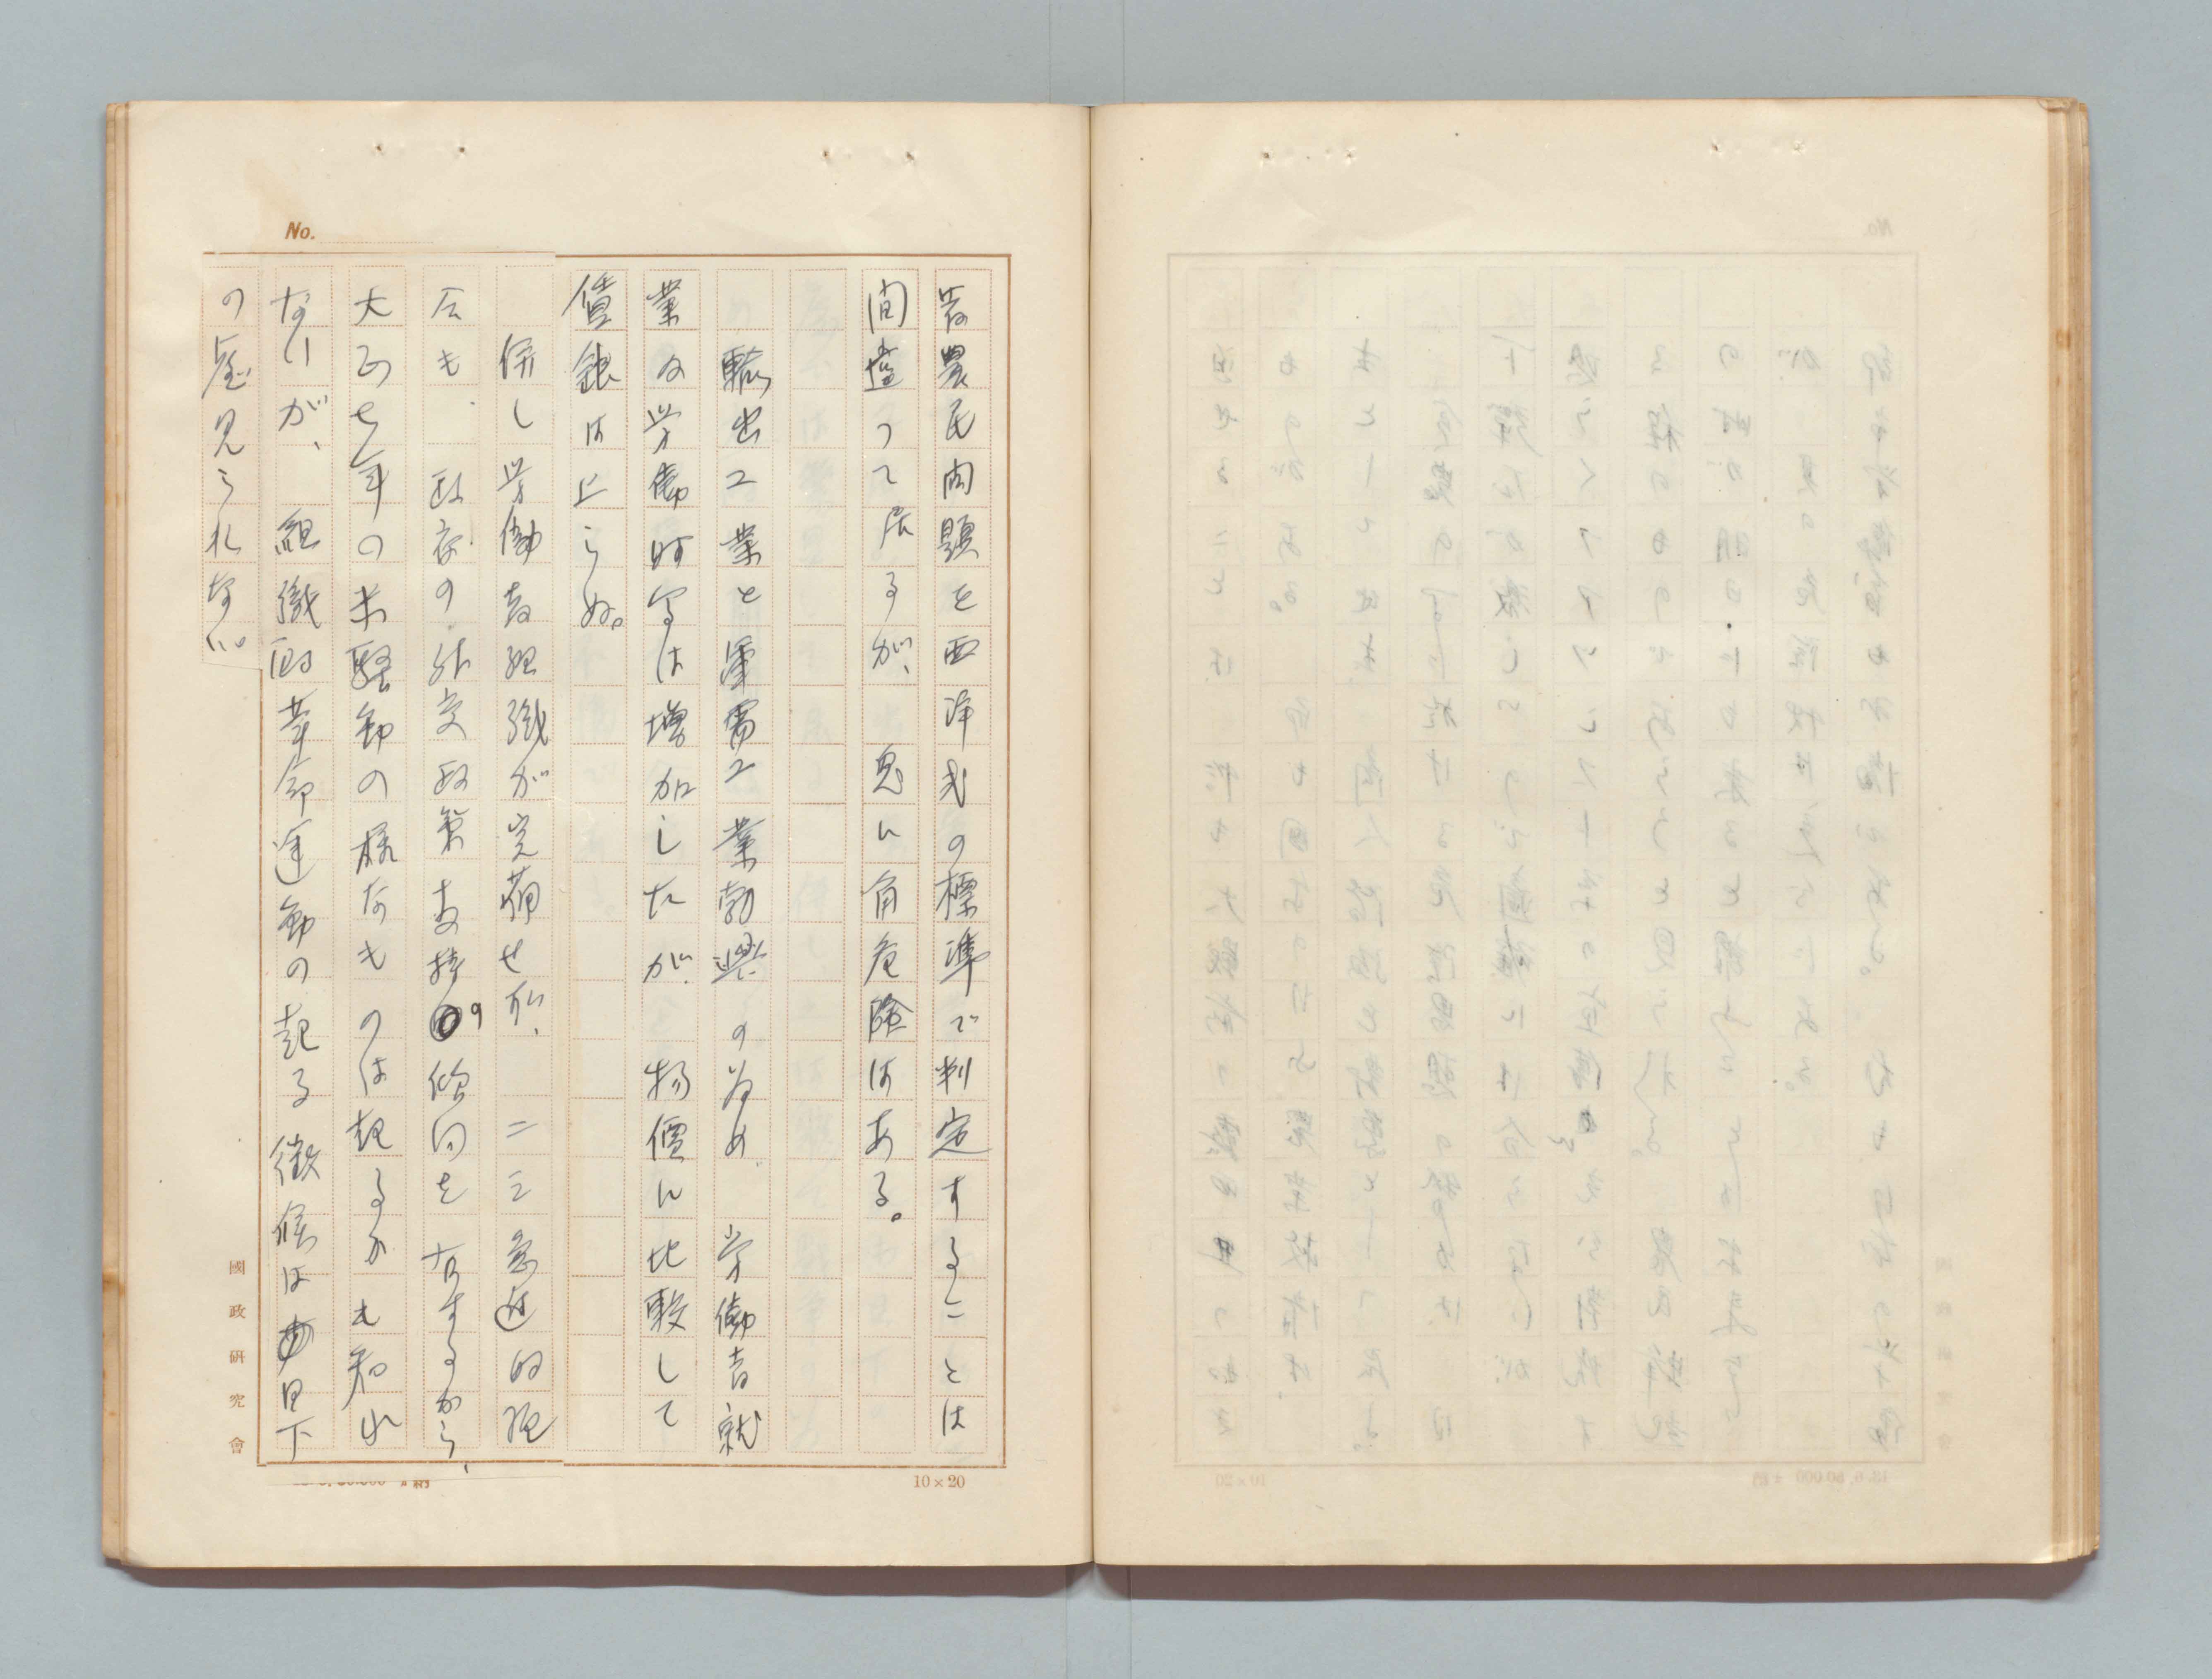 No.
者農民問題を西洋式の標準で判定することは
間違って居るが、 忽に有危険はある。
輸出工業と軍需工業勃興の為め 労働者就
業の労働時間は増加したが、 物價に比較して
賃銀は上らぬ。
併し労働者組織が完備せず、 二三急進的組
合も、 政府の外交政策支持の傾向を有するから、
大正七年の米騒動の様なものは起るかも知れ
ないが、 組織的革命運動の起る徴候は目下
の處見られない。
國政研究會
10×20